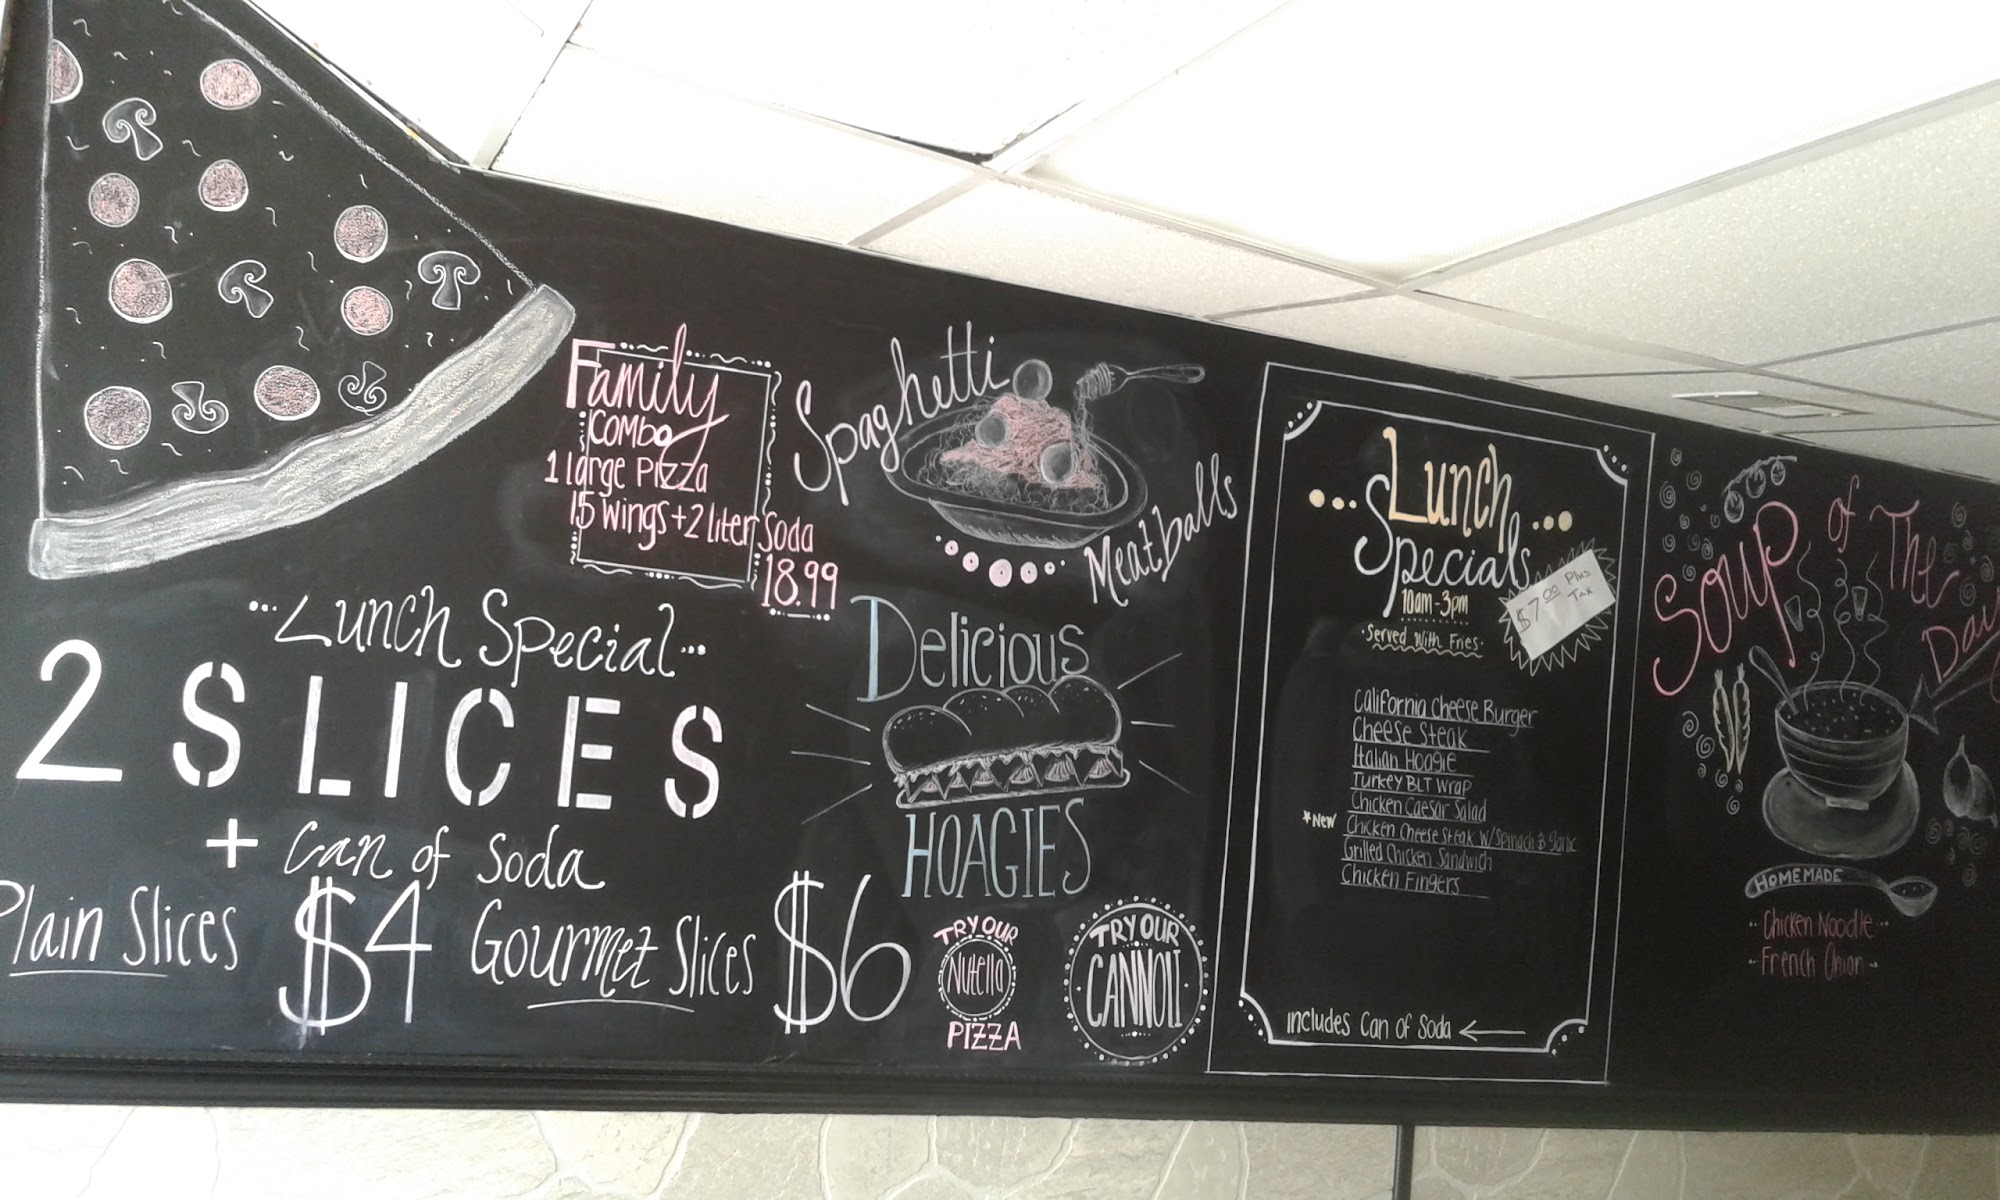 Family
Combo
1 large Pizza
15 wings + 2 liter Soda
18.99
...Lunch Special...
2 SLICES
+ Can of Soda
Plain Slices $4 Gourmet Slices $6
Spaghetti
Meatballs
Delicious
HOAGIES
TRY OUR
Nutella
PIZZA
TRY OUR
CANNOLI
Lunch
Specials
10am-3pm
Served With Fries
$7.00 Plus
Tax
California Cheese Burger
Cheese Steak
Italian Hoagie
Turkey BLT Wrap
Chicken Caesar Salad
*New Chicken Cheese Steak w/Spinach & garlic
Grilled Chicken Sandwich
Chicken Fingers
includes Can of Soda
Soup of The
Day
HOMEMADE
Chicken Noodle
French Onion